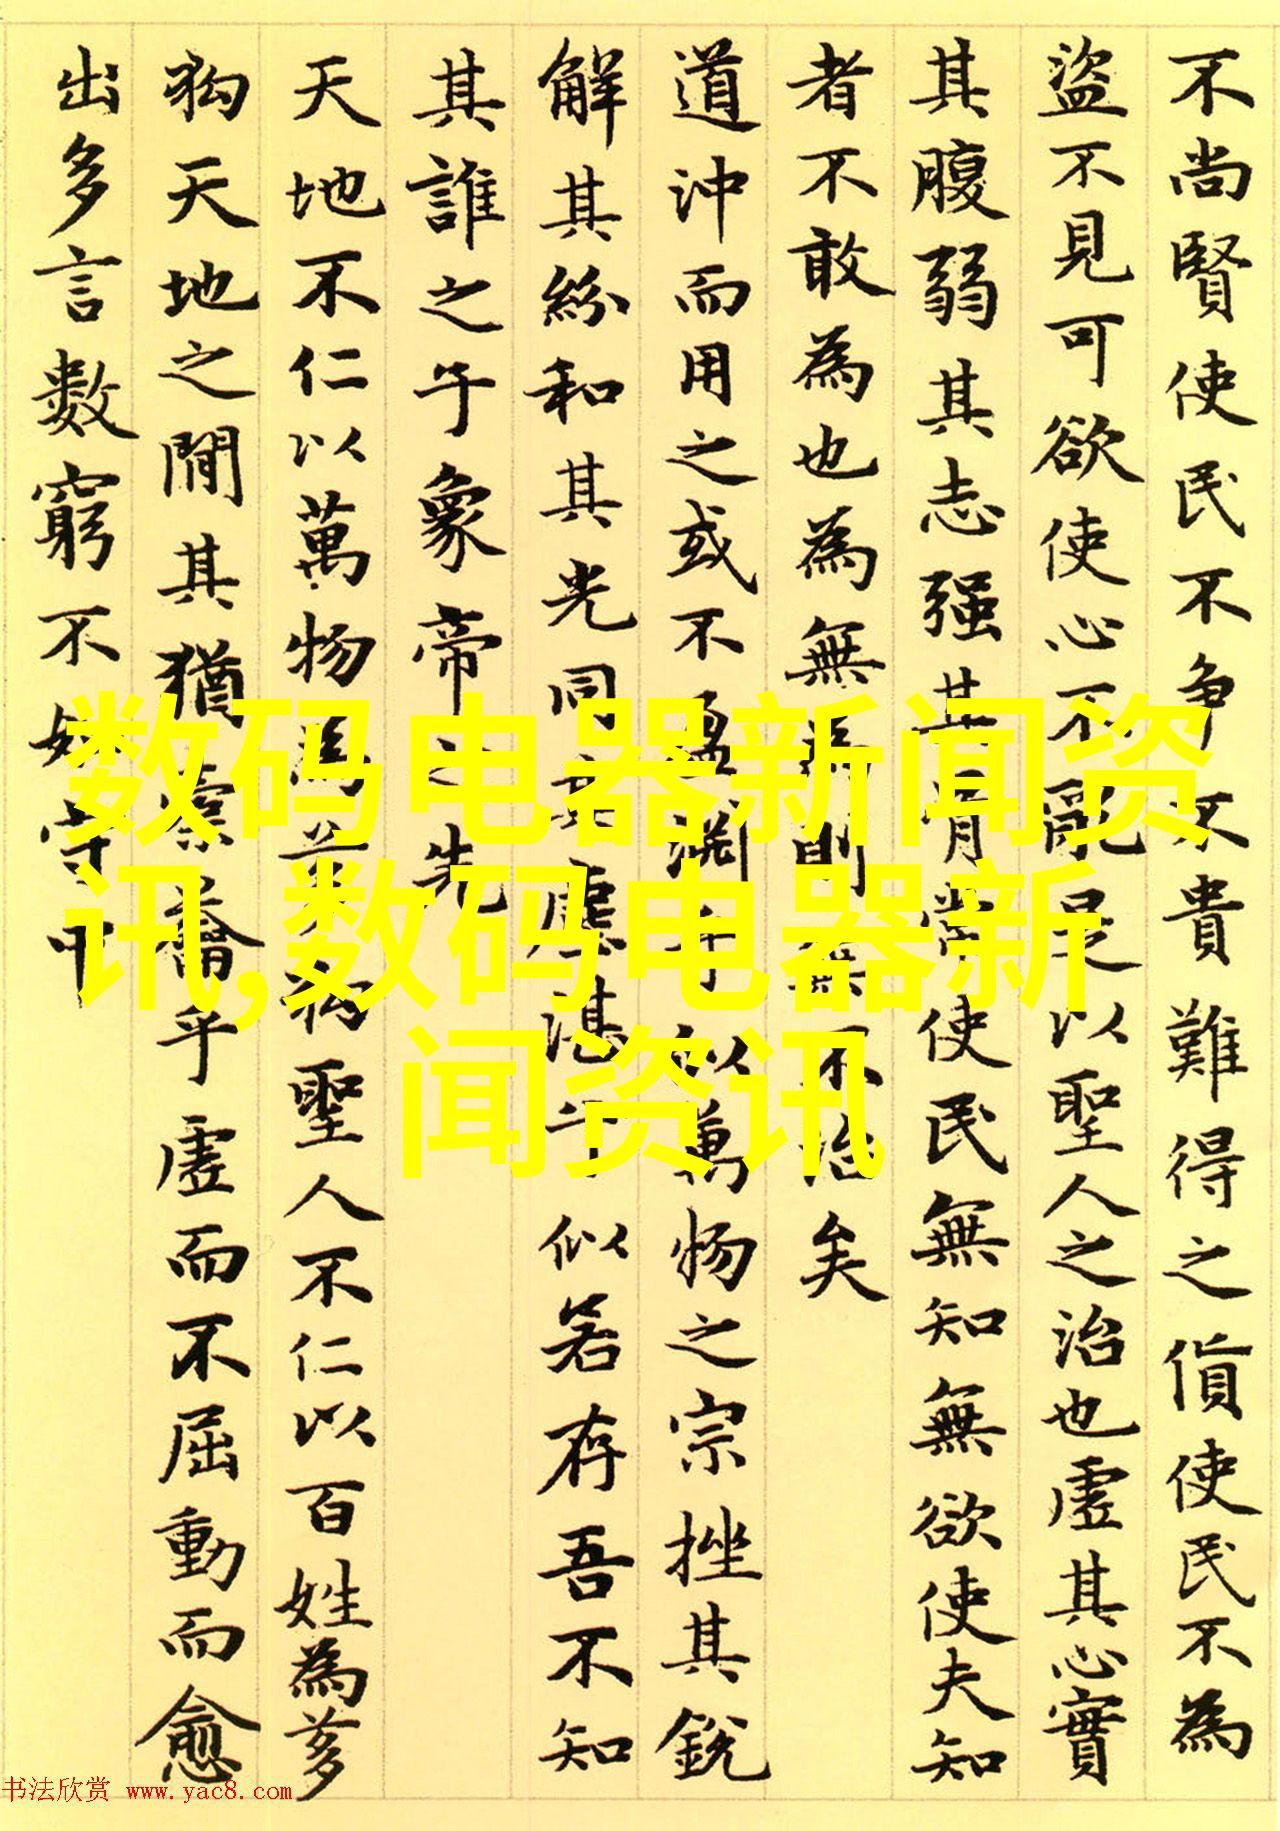 不尚賢使民不争不貴難得之貨使民不為
盜不見可欲使心不亂是以聖人之治也虛其心實
其腹弱其志强其骨常使民無知無欲使夫知
者不敢為也為無為則無不治矣
道沖而用之或不盈淵乎似萬物之宗挫其銳
解其紛和其光同其塵湛乎似若存吾不知
其誰之子象帝之先
天地不仁以萬物為芻狗聖人不仁以百姓為芻
狗天地之間其猶橐籥乎虛而不屈動而愈
出多言數窮不如守中
数码电器新闻资
讯,数码电器新
闻资讯
书法欣赏 www.yac8.com